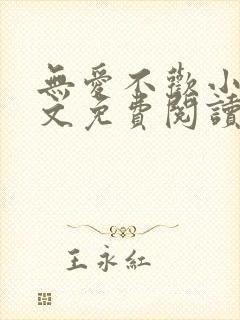 無愛不歡小
文免費閱讀
王永紅